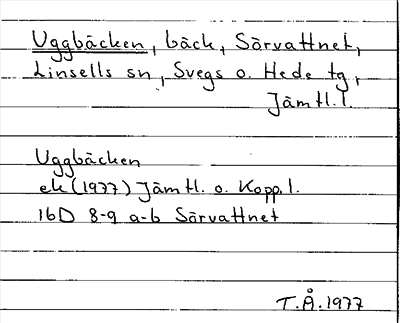 Uggbäcken, bäck, Sörvattnet,
Linsells sn, Svegs o. Hede tg,
Jämtl.l.
Uggbäcken
ek (1977) Jämtl. o. Kopp.l.
16D 8-9 a-b Sörvattnet
T.Å.1977